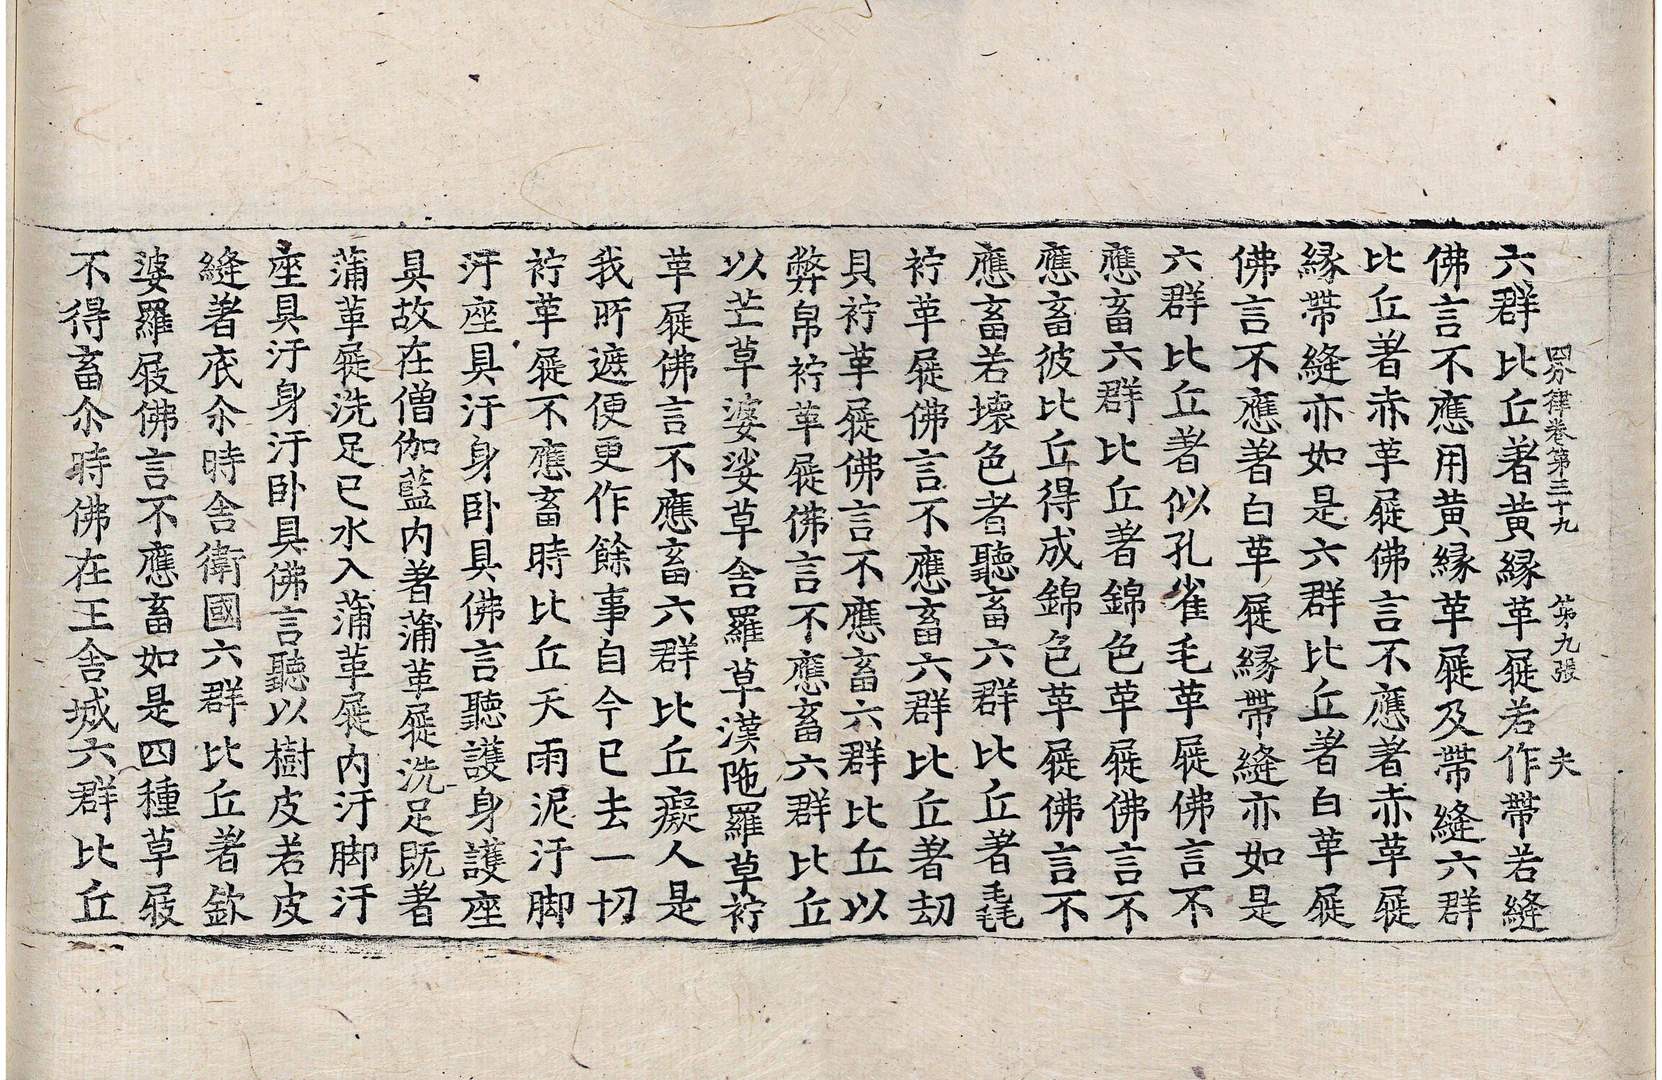 四分律卷第三十九 第九張 夫
六群比丘著黃縁革屣若作帶若縫
佛言不應用黃縁革屣及帶縫六群
比丘著赤革屣佛言不應著赤革屣
縁帶縫亦如是六群比丘著白革屣
佛言不應著白革屣縁帶縫亦如是
六群比丘著似孔雀毛革屣佛言不
應畜六群比丘著錦色革屣佛言不
應畜彼比丘得成錦色革屣佛言不
應畜若壞色者聽畜六群比丘著毳
衧革屣佛言不應畜六群比丘著劫
貝衧革屣佛言不應畜六群比丘以
弊帛衧革屣佛言不應畜六群比丘
以芒草婆娑草舍羅草漢陁羅草衧
革屣佛言不應畜六群比丘癡人是
我所遮便更作餘事自今已去一切
衧革屣不應畜時比丘天雨泥汙脚
汙座具汙身卧具佛言聽護身護座
具故在僧伽藍内著蒲革屣洗足既著
蒲革屣洗足已水入蒲革屣内汙脚汙
座具汙身汙卧具佛言聽以樹皮若皮
縫著底尒時舍衛國六群比丘著欽
婆羅屐佛言不應畜如是四種草屐
不得畜尒時佛在王舍城六群比丘